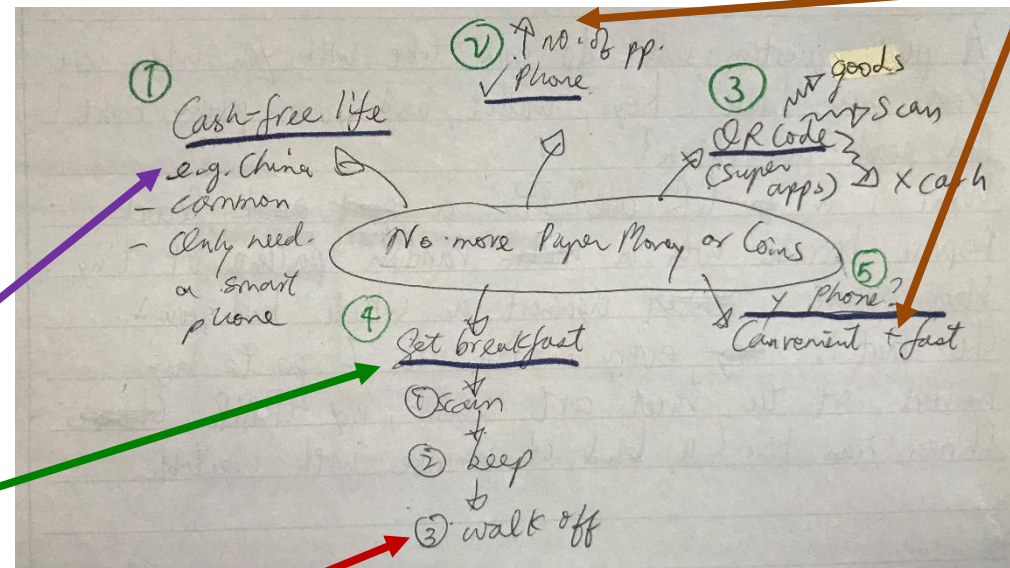 ①
Cash-free life
e.g. China
- common
- Only need
a smart
phone
②
↑ no. of pp.
✓ Phone
③
QR Code
(super
apps)
goods
Scan
x cash
No more Paper Money or Coins
④
Get breakfast
① scan
② beep
③ walk off
⑤
y phone?
Convenient + fast